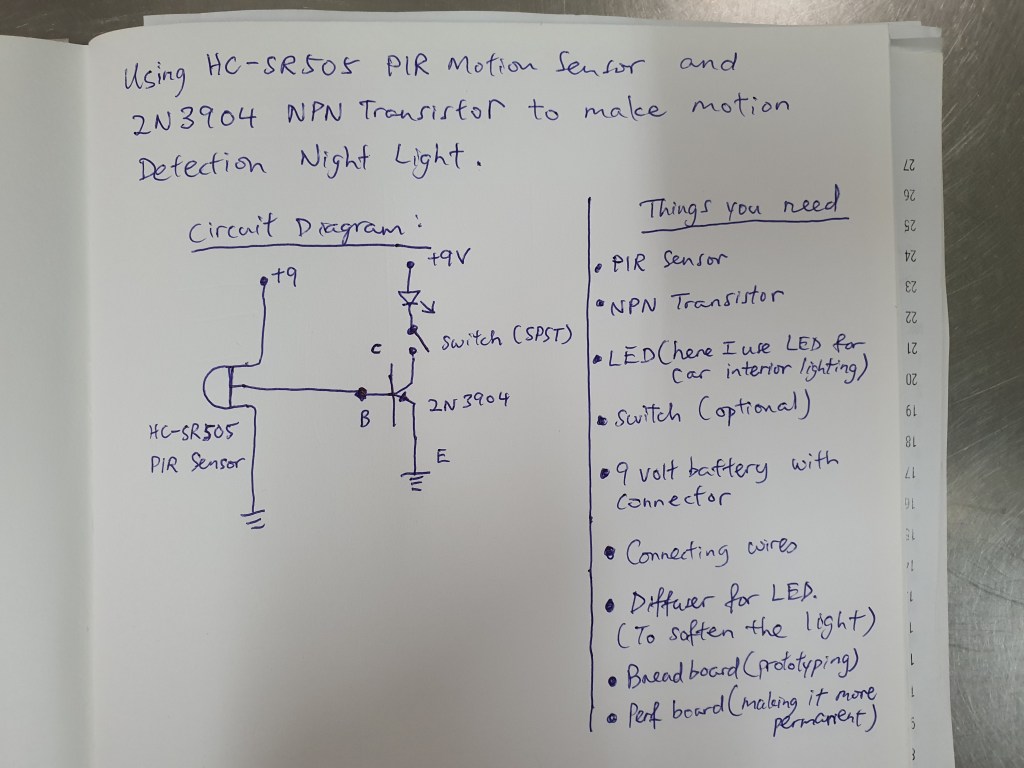 Using HC-SR505 PIR Motion Sensor and
2N3904 NPN Transistor to make motion
Detection Night Light.
Circuit Diagram:
+9
+9V
Switch (SPST)
C
B
2N3904
E
HC-SR505
PIR Sensor
Things you need
• PIR Sensor
• NPN Transistor
• LED (here I use LED for
car interior lighting)
• Switch (optional)
• 9 volt battery with
connector
• Connecting wires
• Diffuser for LED.
(To soften the light)
• Bread board (prototyping)
• Perf board (making it more
permanent)
27
26
25
24
23
22
21
20
19
18
17
16
15